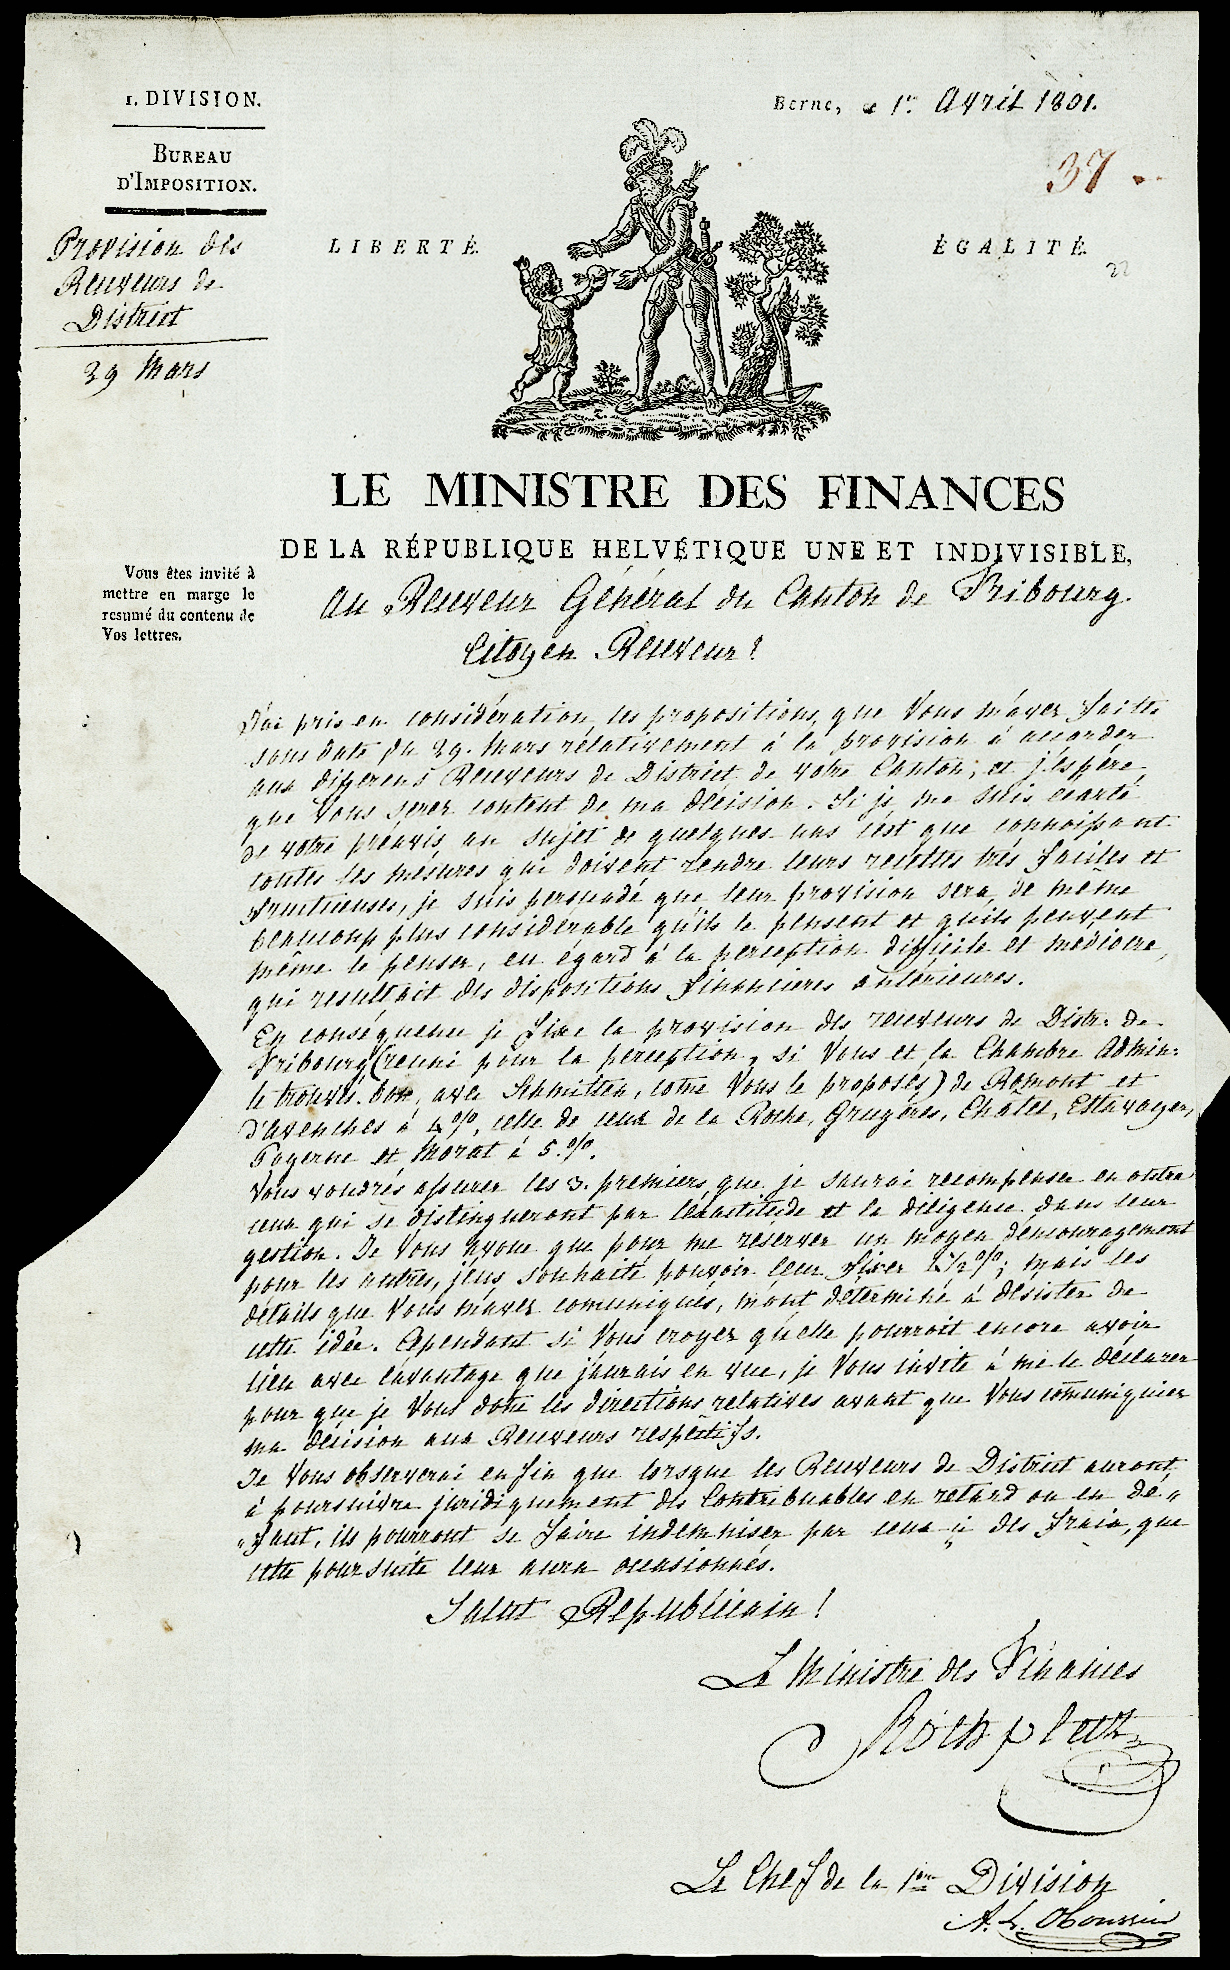 1. DIVISION.
BUREAU
D'IMPOSITION.
Provision des
Receveurs de
District
29 Mars
Berne, le 1.er Avril 1801.
37
22
LIBERTÉ
ÉGALITÉ
LE MINISTRE DES FINANCES
DE LA RÉPUBLIQUE HELVÉTIQUE UNE ET INDIVISIBLE,
Vous êtes invité à
mettre en marge le
resumé du contenu de
Vos lettres.
Au Receveur Général du Canton de Fribourg.
Citoyen Receveur!
J'ai pris en considération les propositions, que Vous m'avez faites
sous date du 29. Mars rélativement à la provision à accorder
aux differens Receveurs de District de votre Canton; et j'espère
que Vous serez content de ma décision. Si je me suis écarté
de votre préavis au sujet de quelques uns c'est que connoissant
toutes les mésures qui doivent rendre leurs recettes très faciles et
fructueuses, je suis persuadé que leur provision sera de même
beaucoup plus considérable qu'ils le pensent et qu'ils peuvent
même le penser, eu égard à la perception difficile et médiocre,
qui resultait des dispositions financieres antérieures.
En conséquence je fixe la provision des receveurs de Distr. de
Fribourg (reuni pour la perception, si Vous et la Chambre Admin:
le trouvés bon, avec Schmitten, come Vous le proposés) de Romont et
d'Avenches à 4 %, celle de ceux de la Roche, Gruyères, Châtel, Estavayer,
Payerne et Morat à 5. %.
Vous voudrés assurer les 3. premiers que je saurai recompenser en outre
ceux qui se distingueront par l'éxactitude et la diligence dans leur
gestion. Je Vous avoue que pour me réserver un moyen d'encouragement
pour les autres, j'eus souhaité pouvoir leur fixer 4 1/2 %; mais les
détails que Vous m'avez comuniqués, m'ont déterminé à désister de
cette idée. Cependant si Vous croyez qu'elle pourroit encore avoir
lieu avec l'avantage que j'aurais en vue, je Vous invite à me le déclarer
pour que je Vous done les directions relatives avant que Vous comuniquiez
ma décision aux Receveurs respectifs.
Je Vous observerai enfin que lorsque les Receveurs de District auront
à poursuivre juridiquement des Contribuables en retard ou en dé„
„faut, ils pourront se faire indemniser par ceux-ci des frais, que
cette poursuite leur aura occasionnés.
Salut Republicain!
Le Ministre des Finances
Rothpletz
Le Chef de la 1ère Division
A. L.